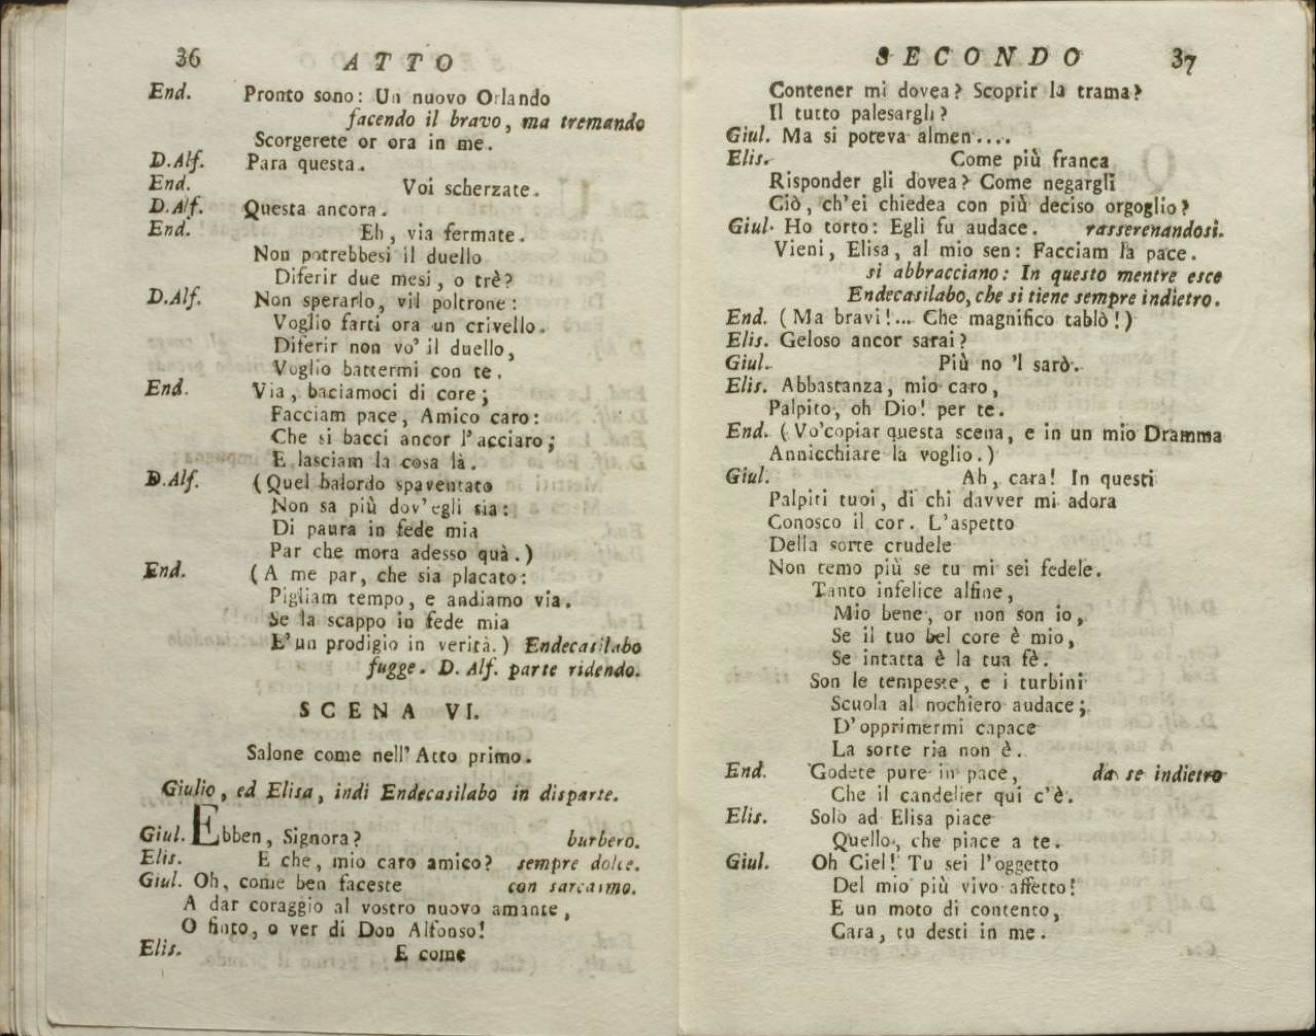 36 ATTO
End. Pronto sono: Un nuovo Orlando
facendo il bravo, ma tremando
Scorgerete or ora in me.
D.Alf. Para questa.
End. Voi scherzate.
D.Alf. Questa ancora.
End. Eh, via fermate.
Non potrebbesi il duello
Diferir due mesi, o trè?
D.Alf. Non sperarlo, vil poltrone:
Voglio farti ora un crivello.
Diferir non vo' il duello,
Voglio battermi con te.
End. Via, baciamoci di core;
Facciam pace, Amico caro:
Che si bacci ancor l'acciaro;
E lasciam la cosa là.
D.Alf. (Quel balordo spaventato
Non sa più dov'egli sia:
Di paura in fede mia
Par che mora adesso quà.)
End. (A me par, che sia placato:
Pigliam tempo, e andiamo via.
Se la scappo in fede mia
E' un prodigio in verità.) Endecasilabo
fugge. D. Alf. parte ridendo.
SCENA VI.
Salone come nell' Atto primo.
Giulio, ed Elisa, indi Endecasilabo in disparte.
Giul. Ebben, Signora? burbero.
Elis. E che, mio caro amico? sempre dolce.
Giul. Oh, come ben faceste con sarcasmo.
A dar coraggio al vostro nuovo amante,
O finto, o ver di Don Alfonso!
Elis. E come
SECONDO 37
Contener mi dovea? Scoprir la trama?
Il tutto palesargli?
Giul. Ma si poteva almen....
Elis. Come più franca
Risponder gli dovea? Come negargli
Ciò, ch'ei chiedea con più deciso orgoglio?
Giul. Ho torto: Egli fu audace. rasserenandosi.
Vieni, Elisa, al mio sen: Facciam la pace.
si abbracciano: In questo mentre esce
Endecasilabo, che si tiene sempre indietro.
End. (Ma bravi!... Che magnifico tablò!)
Elis. Geloso ancor sarai?
Giul. Più no 'l sarò.
Elis. Abbastanza, mio caro,
Palpito, oh Dio! per te.
End. (Vo'copiar questa scena, e in un mio Dramma
Annicchiare la voglio.)
Giul. Ah, cara! In questi
Palpiti tuoi, di chi davver mi adora
Conosco il cor. L'aspetto
Della sorte crudele
Non temo più se tu mi sei fedele.
Tanto infelice alfine,
Mio bene, or non son io,
Se il tuo bel core è mio,
Se intatta è la tua fè.
Son le tempeste, e i turbini
Scuola al nochiero audace;
D'opprimermi capace
La sorte ria non è.
End. Godete pure in pace, da se indietro
Che il candelier qui c'è.
Elis. Solo ad Elisa piace
Quello, che piace a te.
Giul. Oh Ciel! Tu sei l'oggetto
Del mio più vivo affetto!
E un moto di contento,
Cara, tu desti in me.